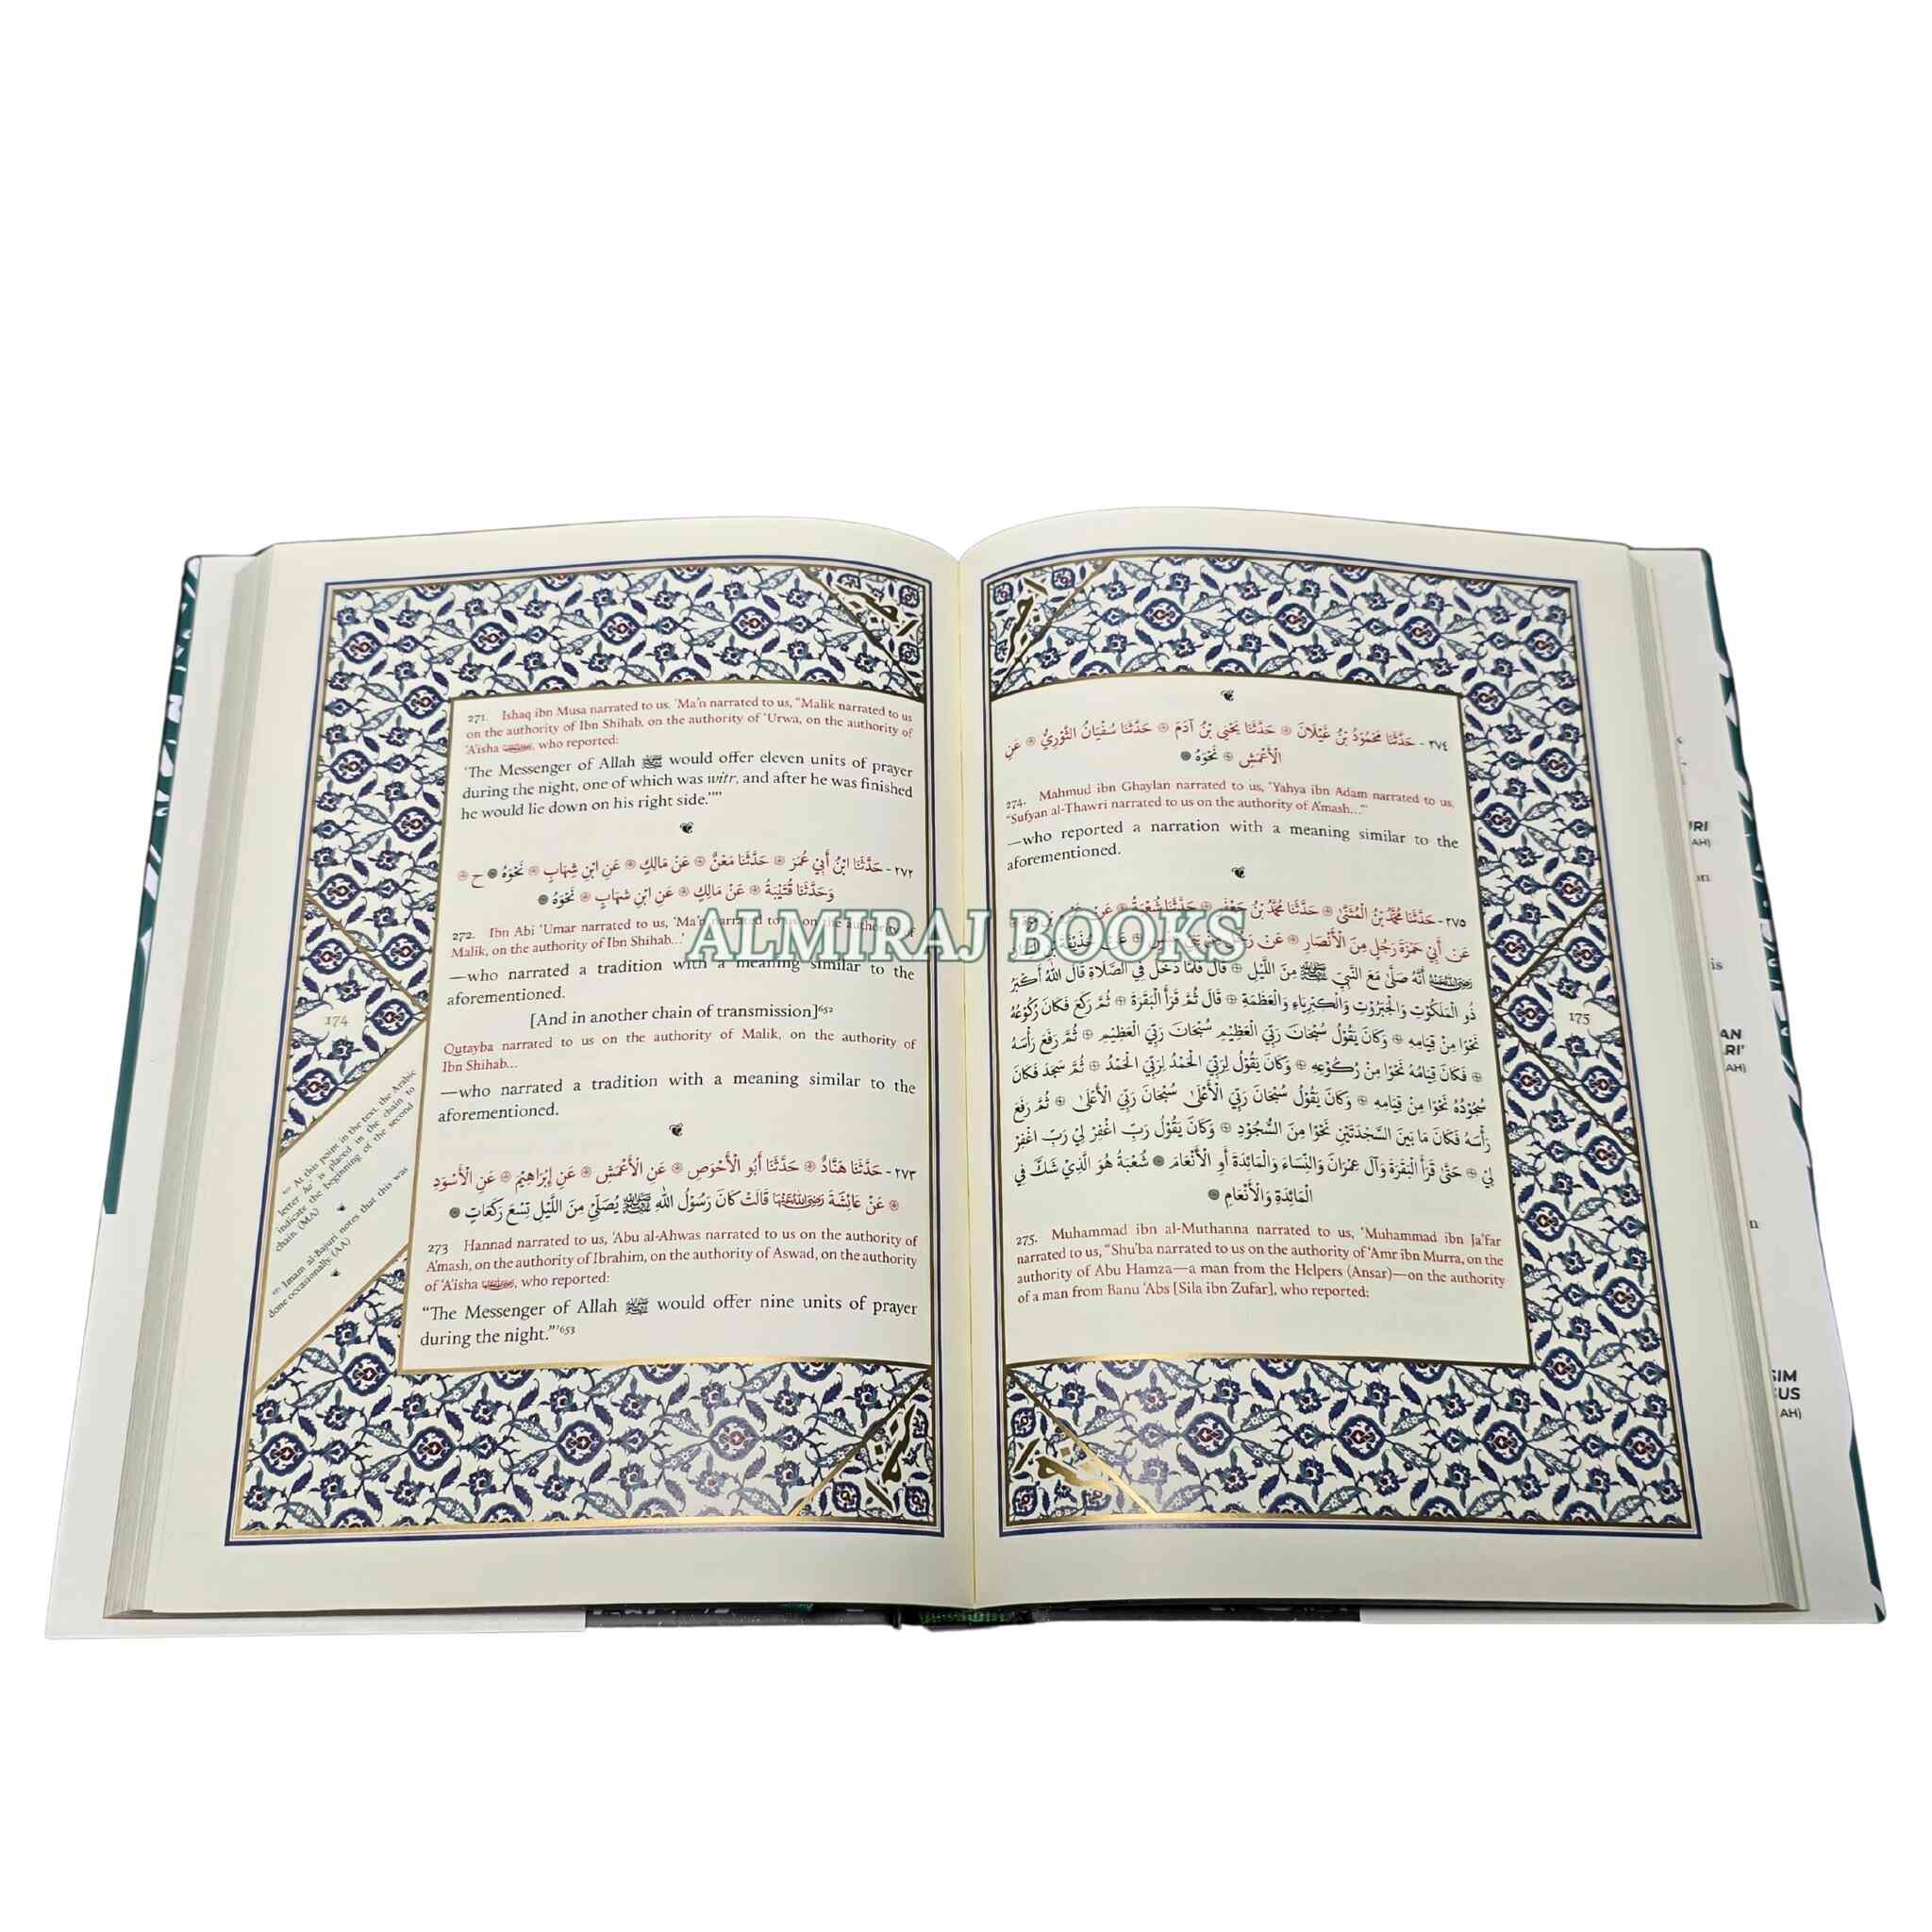 271. Ishaq ibn Musa narrated to us, 'Ma'n narrated to us, "Malik narrated to us
on the authority of Ibn Shihab, on the authority of 'Urwa, on the authority of
'A'isha, who reported:
'The Messenger of Allah ﷺ would offer eleven units of prayer
during the night, one of which was witr, and after he was finished
he would lie down on his right side.'"'
٢٧٢ - حَدَّثَنَا ابْنُ أَبِي عُمَرَ ۞ حَدَّثَنَا مَعْنٌ ۞ عَنْ مَالِكٍ ۞ عَنِ ابْنِ شِهَابٍ ۞ نَحْوَهُ ۞ ح ۞
وَحَدَّثَنَا قُتَيْبَةُ ۞ عَنْ مَالِكٍ ۞ عَنِ ابْنِ شِهَابٍ ۞ نَحْوَهُ ۞
272. Ibn Abi 'Umar narrated to us, 'Ma'n narrated to us on the authority of
Malik, on the authority of Ibn Shihab...'
—who narrated a tradition with a meaning similar to the
aforementioned.
[And in another chain of transmission]⁶⁵²
Qutayba narrated to us on the authority of Malik, on the authority of
Ibn Shihab...
—who narrated a tradition with a meaning similar to the
aforementioned.
٢٧٣ - حَدَّثَنَا هَنَّادٌ ۞ حَدَّثَنَا أَبُو الْأَحْوَصِ ۞ عَنِ الْأَعْمَشِ ۞ عَنِ إِبْرَاهِيْمَ ۞ عَنِ الْأَسْوَدِ
۞ عَنْ عَائِشَةَ رضي الله عنها قَالَتْ كَانَ رَسُوْلُ اللهِ ﷺ يُصَلِّيْ مِنَ اللَّيْلِ تِسْعَ رَكَعَاتٍ ۞
273 Hannad narrated to us, 'Abu al-Ahwas narrated to us on the authority of
A'mash, on the authority of Ibrahim, on the authority of Aswad, on the authority
of 'A'isha, who reported:
"The Messenger of Allah ﷺ would offer nine units of prayer
during the night."'⁶⁵³
174
⁶⁵² At this point in the text, the Arabic
letter ḥa' is placed in the chain to
indicate the beginning of the second
chain. (MA)
⁶⁵³ Imam al-Bajuri notes that this was
done occasionally. (AA)
٢٧٤ - حَدَّثَنَا مَحْمُوْدُ بْنُ غَيْلَانَ ۞ حَدَّثَنَا يَحْيَى بْنُ آدَمَ ۞ حَدَّثَنَا سُفْيَانُ الثَّوْرِيُّ ۞ عَنِ
الْأَعْمَشِ ۞ نَحْوَهُ ۞
274. Mahmud ibn Ghaylan narrated to us, 'Yahya ibn Adam narrated to us,
"Sufyan al-Thawri narrated to us on the authority of A'mash..."'
—who reported a narration with a meaning similar to the
aforementioned.
٢٧٥ - حَدَّثَنَا مُحَمَّدُ بْنُ الْمُثَنَّى ۞ حَدَّثَنَا مُحَمَّدُ بْنُ جَعْفَرٍ ۞ حَدَّثَنَا شُعْبَةُ ۞ عَنْ
عَنْ أَبِي حَمْزَةَ رَجُلٍ مِنَ الْأَنْصَارِ ۞ عَنْ
رضي الله عنه أَنَّهُ صَلَّى مَعَ النَّبِيِّ ﷺ مِنَ اللَّيْلِ ۞ قَالَ فَلَمَّا دَخَلَ فِي الصَّلَاةِ قَالَ اللهُ أَكْبَرُ
ذُو الْمَلَكُوْتِ وَالْجَبَرُوْتِ وَالْكِبْرِيَاءِ وَالْعَظَمَةِ ۞ قَالَ ثُمَّ قَرَأَ الْبَقَرَةَ ۞ ثُمَّ رَكَعَ فَكَانَ رُكُوْعُهُ
نَحْوًا مِنْ قِيَامِهِ ۞ وَكَانَ يَقُوْلُ سُبْحَانَ رَبِّيَ الْعَظِيْمِ سُبْحَانَ رَبِّيَ الْعَظِيْمِ ۞ ثُمَّ رَفَعَ رَأْسَهُ
۞ فَكَانَ قِيَامُهُ نَحْوًا مِنْ رُكُوْعِهِ ۞ وَكَانَ يَقُوْلُ لِرَبِّيَ الْحَمْدُ لِرَبِّيَ الْحَمْدُ ۞ ثُمَّ سَجَدَ فَكَانَ
سُجُوْدُهُ نَحْوًا مِنْ قِيَامِهِ ۞ وَكَانَ يَقُوْلُ سُبْحَانَ رَبِّيَ الْأَعْلَى سُبْحَانَ رَبِّيَ الْأَعْلَى ۞ ثُمَّ رَفَعَ
رَأْسَهُ فَكَانَ مَا بَيْنَ السَّجْدَتَيْنِ نَحْوًا مِنَ السُّجُوْدِ ۞ وَكَانَ يَقُوْلُ رَبِّ اغْفِرْ لِيْ رَبِّ اغْفِرْ
لِيْ ۞ حَتَّى قَرَأَ الْبَقَرَةَ وَآلَ عِمْرَانَ وَالنِّسَاءَ وَالْمَائِدَةَ أَوِ الْأَنْعَامَ ۞ شُعْبَةُ هُوَ الَّذِيْ شَكَّ فِي
الْمَائِدَةِ وَالْأَنْعَامِ ۞
275. Muhammad ibn al-Muthanna narrated to us, 'Muhammad ibn Ja'far
narrated to us, "Shu'ba narrated to us on the authority of 'Amr ibn Murra, on the
authority of Abu Hamza—a man from the Helpers (Ansar)—on the authority
of a man from Banu 'Abs [Sila ibn Zufar], who reported:
175
ALMIRAJ BOOKS